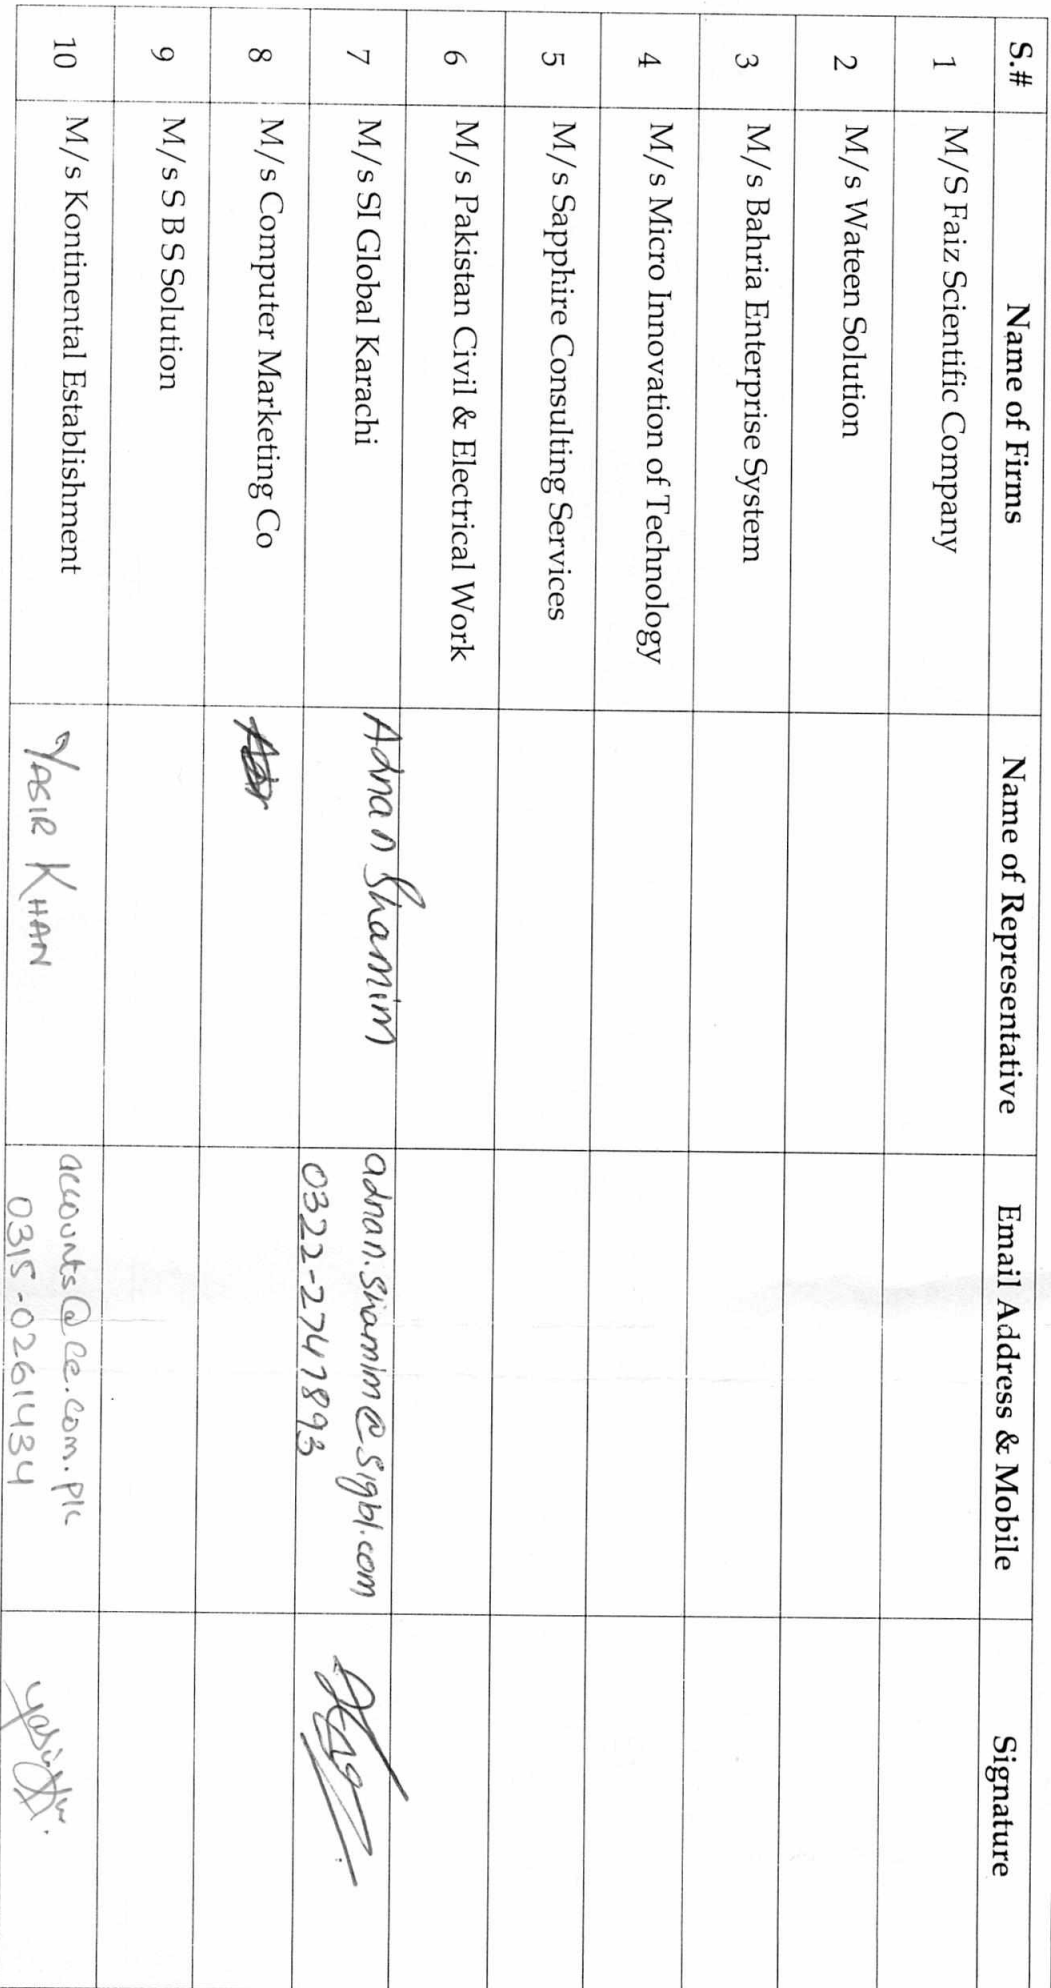 S.# Name of Firms Name of Representative Email Address & Mobile Signature
1 M/S Faiz Scientific Company
2 M/s Wateen Solution
3 M/s Bahria Enterprise System
4 M/s Micro Innovation of Technology
5 M/s Sapphire Consulting Services
6 M/s Pakistan Civil & Electrical Work
7 M/s SI Global Karachi Adnan Shamim adnan.shamim@sigbl.com
0322-2747893
8 M/s Computer Marketing Co
9 M/s S B S Solution
10 M/s Kontinental Establishment YASIR KHAN accounts@ce.com.pk
0315-0261434